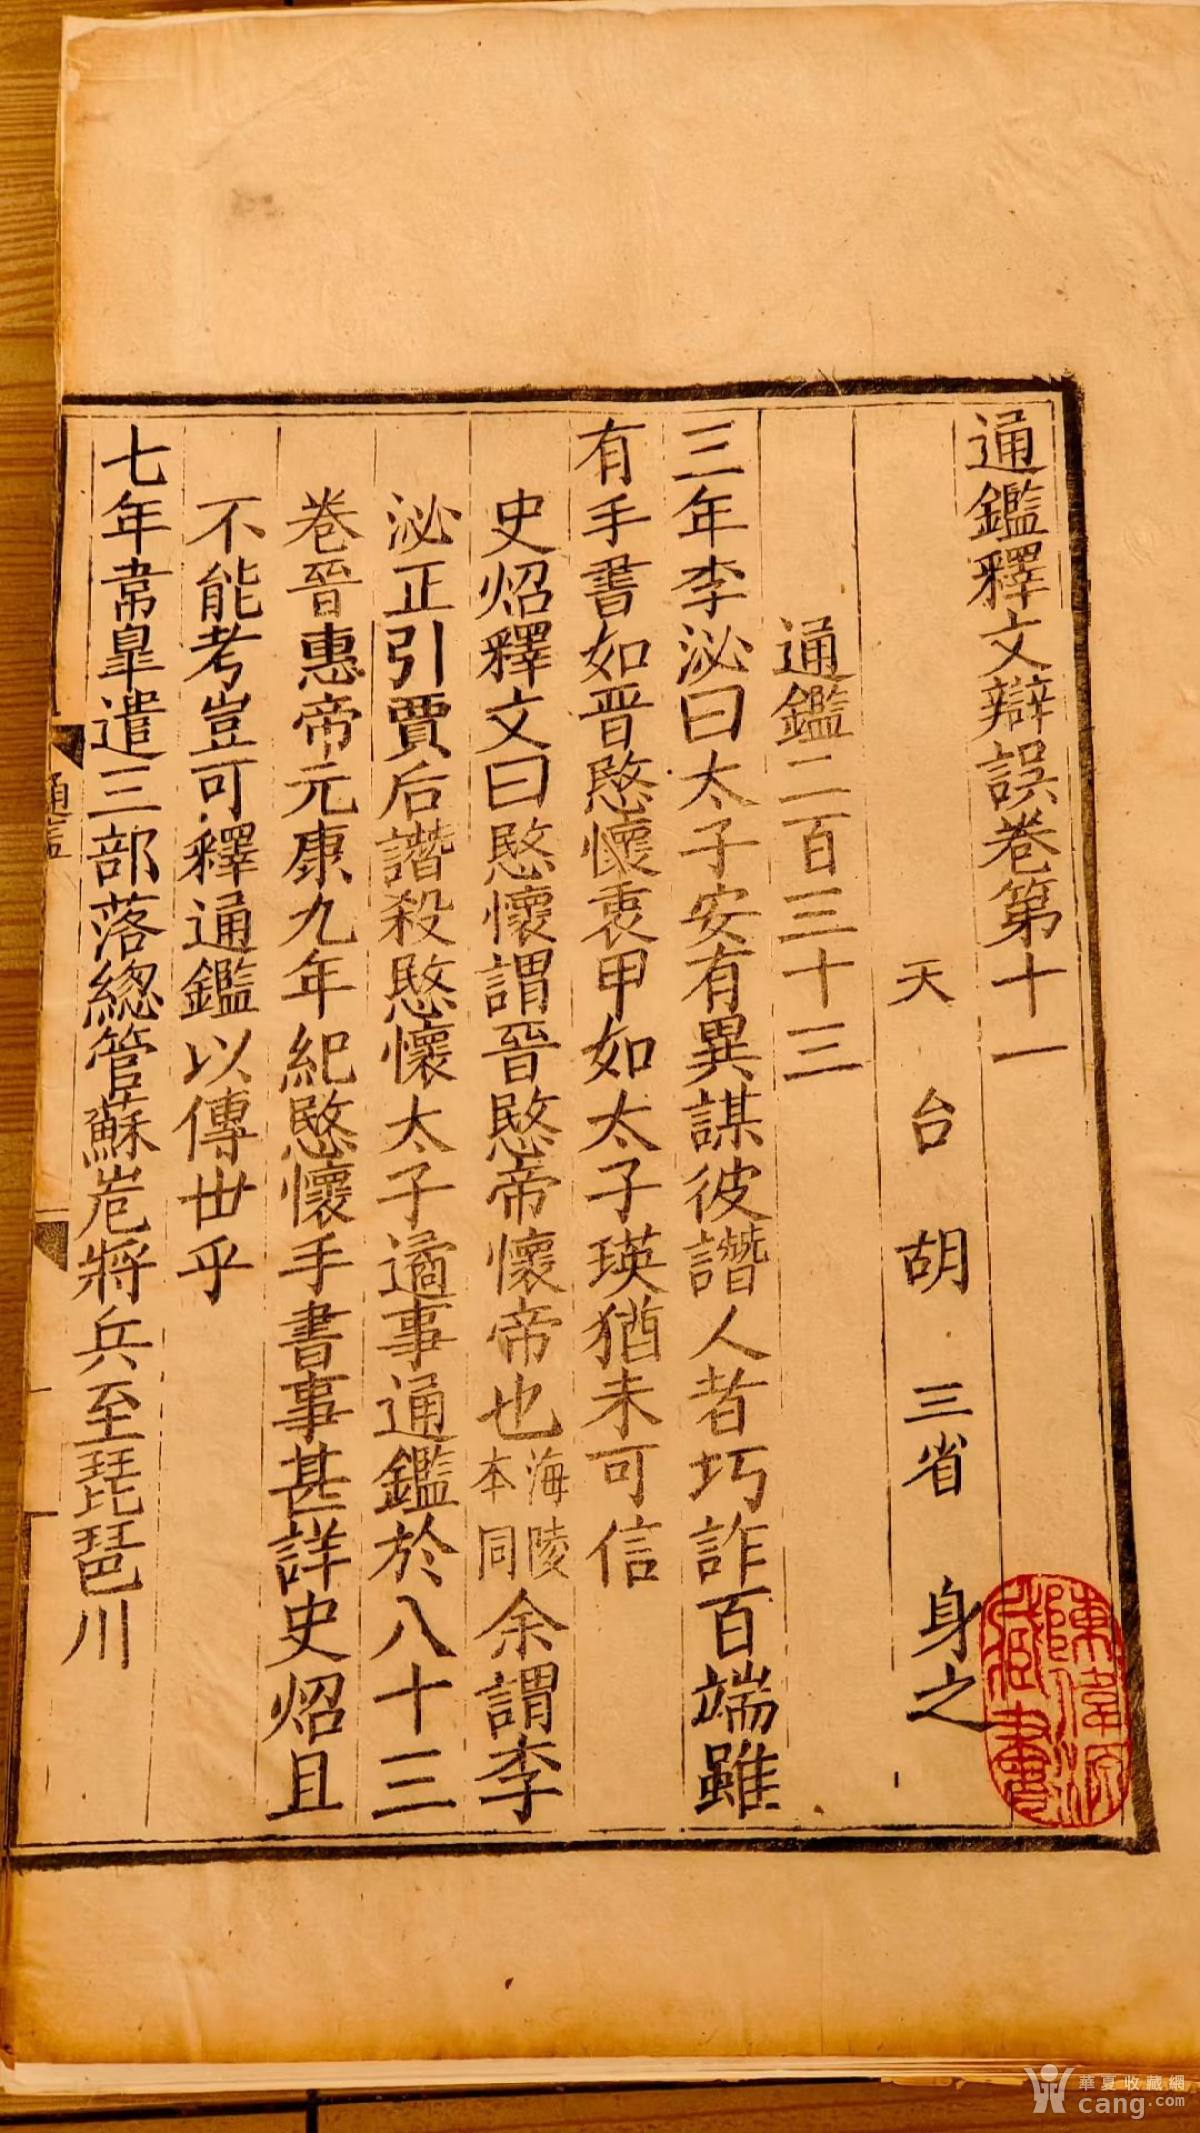 通鑑釋文辯誤卷第十一
天台胡三省身之
通鑑二百三十三
三年李泌曰太子安有異謀彼譖人者巧詐百端雖
有手書如晉愍懷衷甲如太子瑛猶未可信
史炤釋文曰愍懷謂晉愍帝懷帝也海陵本同余謂李
泌正引賈后譖殺愍懷太子遹事通鑑於八十三
卷晉惠帝元康九年紀愍懷手書事甚詳史炤且
不能考豈可釋通鑑以傳世乎
七年韋皐遣三部落緫管蘇峞將兵至琵琶川
華夏收藏網
cang.com